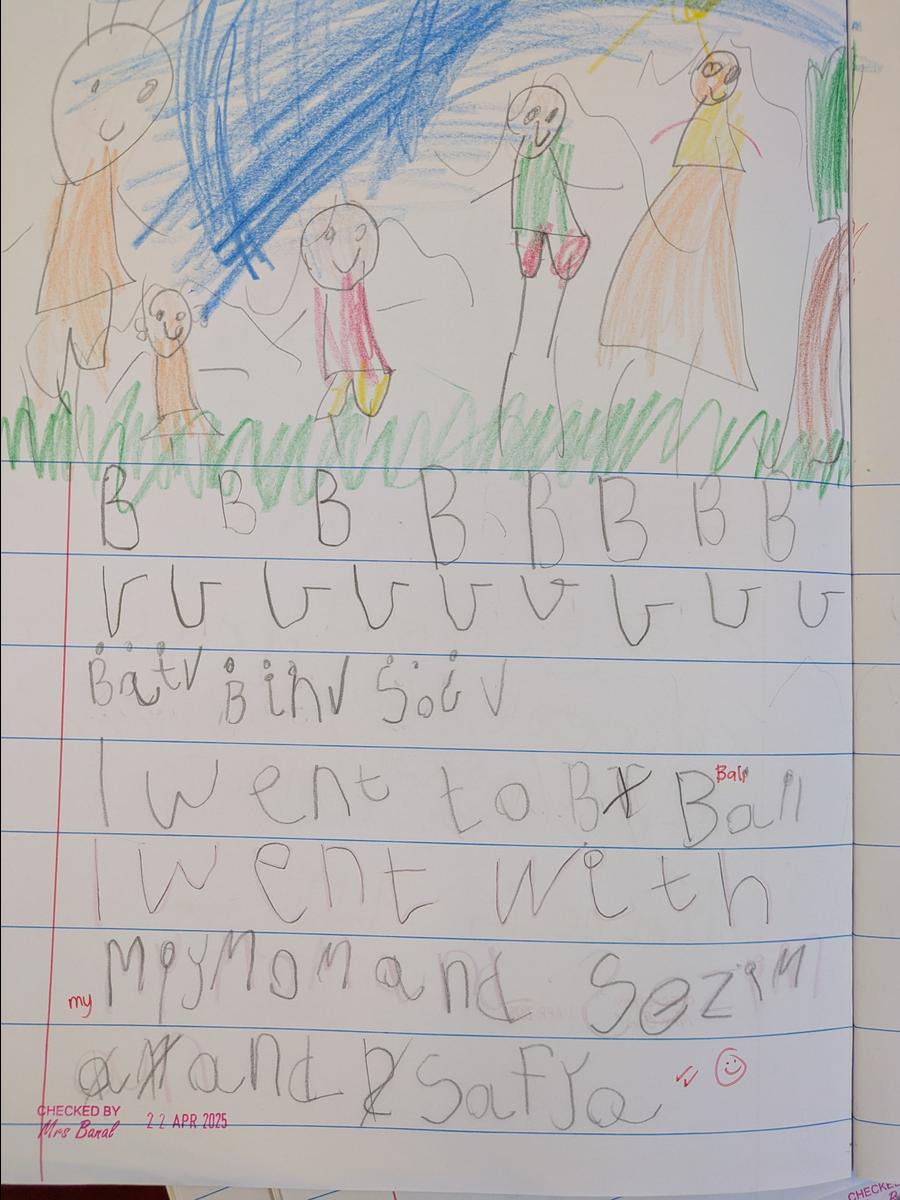 B B B B B B B B
r v v v v v v v v
Batv Binv Soiv
I went to Bali Ball
I went with
my MyMom and Sozim
and Safya
CHECKED BY
Mrs Banal 22 APR 2025